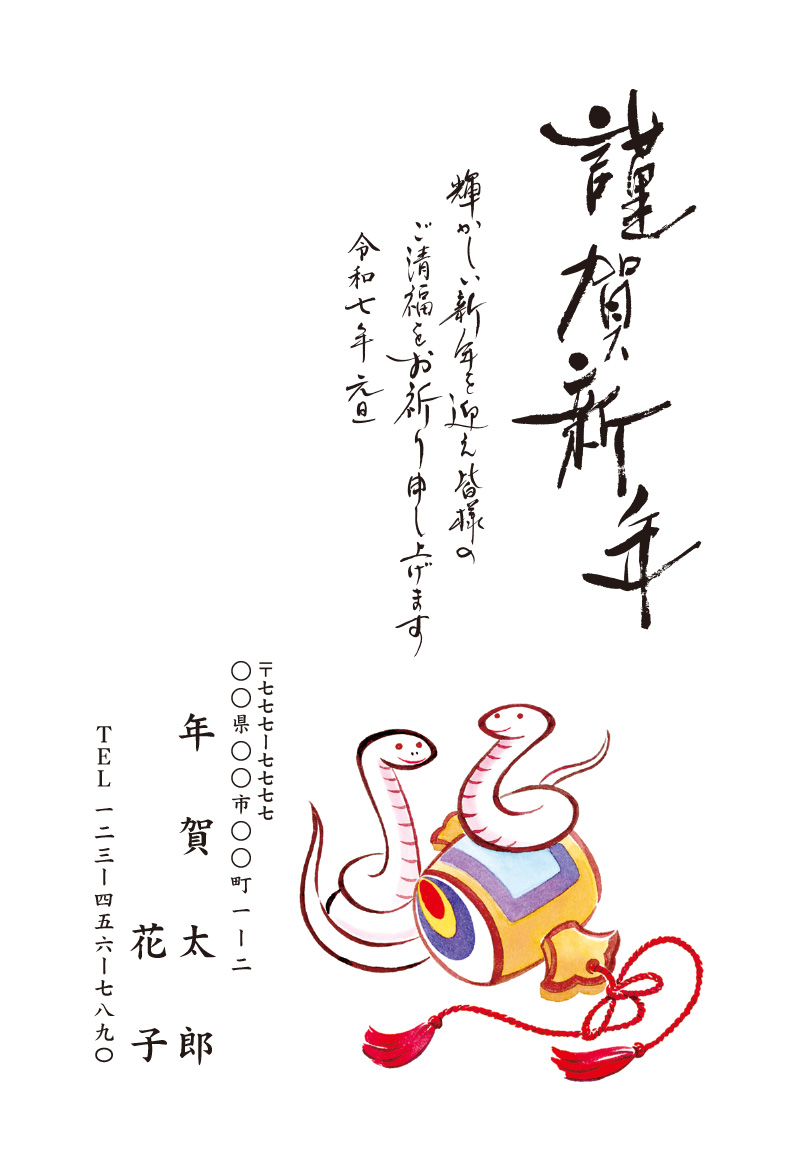 謹賀新年
輝かしい新年を迎え皆様の
ご清福をお祈り申し上げます
令和七年元旦
〒七七七ー七七七七
〇〇県〇〇市〇〇町一ー二
年賀太郎
花子
TEL一二三ー四五六ー七八九〇